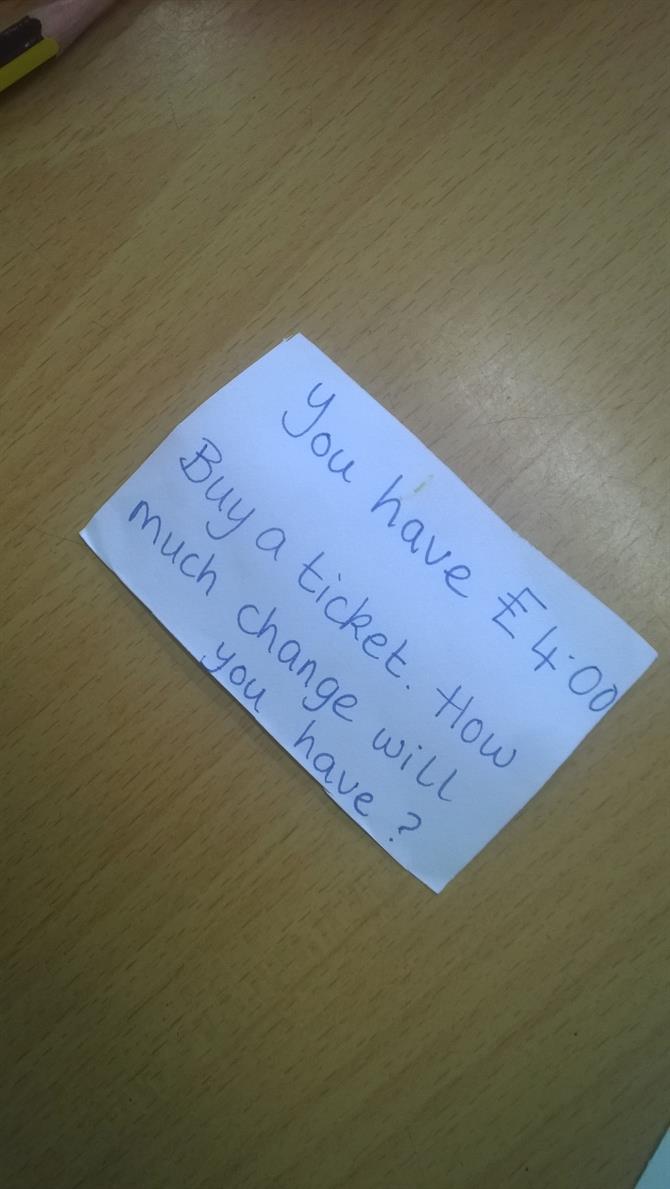 You have £4.00
Buy a ticket. How
much change will
you have?